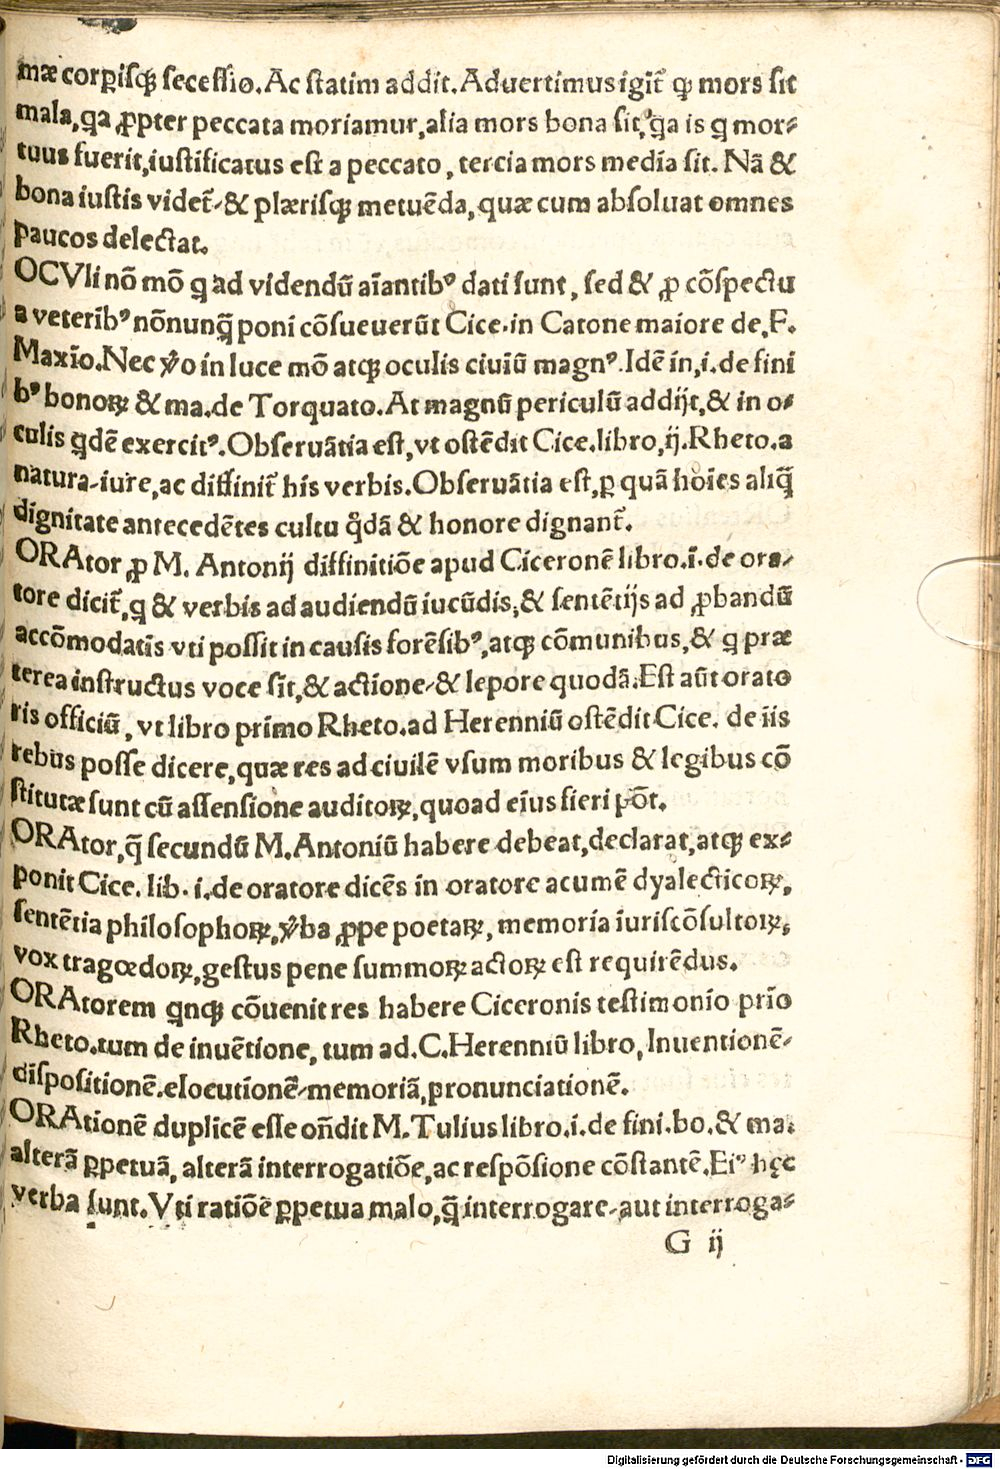 mæ corꝑisqꝫ secessio. Ac statim addit. Aduertimus igit̃ ꝙ mors sit
mala, qa ꝓpter peccata moriamur, alia mors bona sit, qa is q mor⸗
tuus fuerit, iustificatus est a peccato, tercia mors media sit. Nã &
bona iustis videt̃, & plærisqꝫ metuẽda, quæ cum absoluat omnes
paucos delectat.
OCVli nõ mõ q ad videndũ aĩantibꝰ dati sunt, sed & ꝓ cõspectu
a veteribꝰ nõnunq̃ poni cõsueuerũt Cice. in Catone maiore de, F.
Maxĩo. Nec ꝟo in luce mõ atqꝫ oculis ciuiũ magnꝰ. Idẽ in, i. de fini
bꝰ bonoꝝ & ma. de Torquato. At magnũ periculũ addijt, & in o⸗
culis qdẽ exercitꝰ. Obseruãtia est, vt ostẽdit Cice. libro, ij. Rheto. a
natura, iure, ac diffinit̃ his verbis. Obseruãtia est, ꝑ quã hoĩes aliq̃
dignitate antecedẽtes cultu qdã & honore dignant̃.
ORAtor ꝓ M. Antonij diffinitiõe apud Ciceronẽ libro. i. de ora⸗
tore dicit̃, q & verbis ad audiendũ iucũdis, & sentẽtijs ad ꝓbandũ
accõmodatis vti possit in causis forẽsibꝰ, atqꝫ cõmunibus, & q præ
terea instructus voce sit, & actione, & lepore quodã. Est aũt orato
ris officiũ, vt libro primo Rheto. ad Herenniũ ostẽdit Cice. de iis
rebus posse dicere, quæ res ad ciuilẽ vsum moribus & legibus cõ
stitutæ sunt cũ assensione auditoꝝ, quoad eius fieri põt.
ORAtor, q̃ secundũ M. Antoniũ habere debeat, declarat, atqꝫ ex⸗
ponit Cice. lib. i. de oratore dicẽs in oratore acumẽ dyalecticoꝝ,
sentẽtia philosophoꝝ, ꝟba ꝓpe poetaꝝ, memoria iuriscõsultoꝝ,
vox tragœdoꝝ, gestus pene summoꝝ actoꝝ est requirẽdus.
ORAtorem qnqꝫ cõuenit res habere Ciceronis testimonio prĩo
Rheto. tum de inuẽtione, tum ad. C. Herenniũ libro, Inuentionẽ,
dispositionẽ. elocutionẽ, memoriã, pronunciationẽ.
ORAtionẽ duplicẽ esse oñdit M. Tulius libro. i. de fini. bo. & ma.
alterã ꝑpetuã, alterã interrogatiõe, ac respõsione cõstantẽ. Eiꝰ hęc
verba sunt. Vti ratiõe ꝑpetua malo, q̃ interrogare, aut interroga⸗
G ij
Digitalisierung gefördert durch die Deutsche Forschungsgemeinschaft - DFG